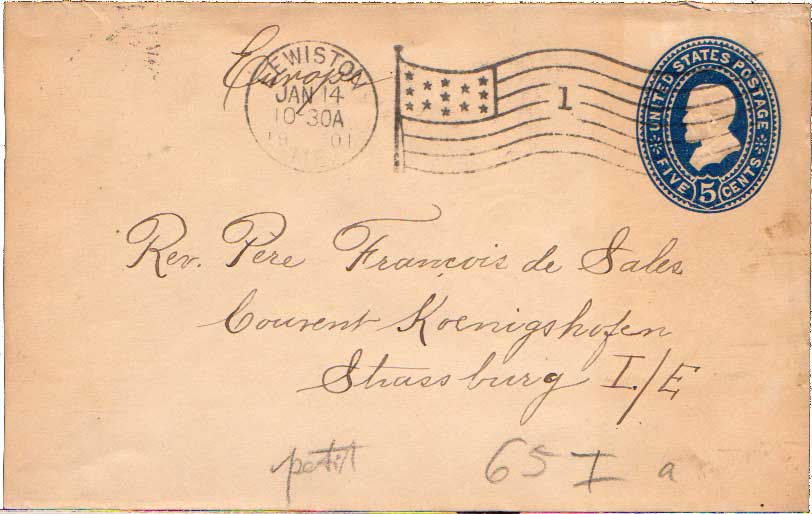 Europe
LEWISTON
JAN 14
10-30A
1901
ME.
1
UNITED STATES POSTAGE
FIVE 5 CENTS
Rev. Père François de Sales
Couvent Koenigshofen
Strassburg I./E
petit
65 I a